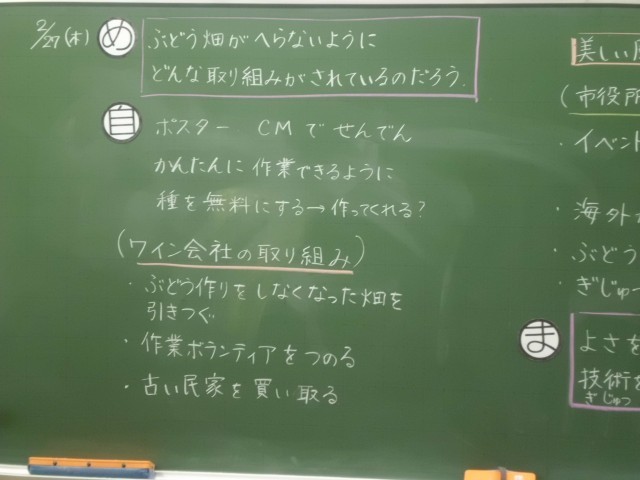 2/27(木)
め
ぶどう畑がへらないように
どんな取り組みがされているのだろう。
自
ポスター CMでせんでん
かんたんに作業できるように
種を無料にする→作ってくれる?
(ワイン会社の取り組み)
・ぶどう作りをしなくなった畑を
引きつぐ
・作業ボランティアをつのる
・古い民家を買い取る
美しい
(市役所
・イベント
・海外
・ぶどう
・ぎじゅつ
ま
よさを
技術を
ぎじゅつ